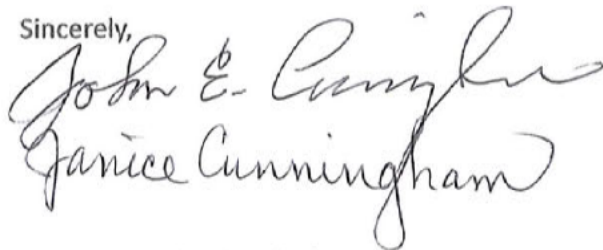 Sincerely,
John E. Cunningham
Janice Cunningham